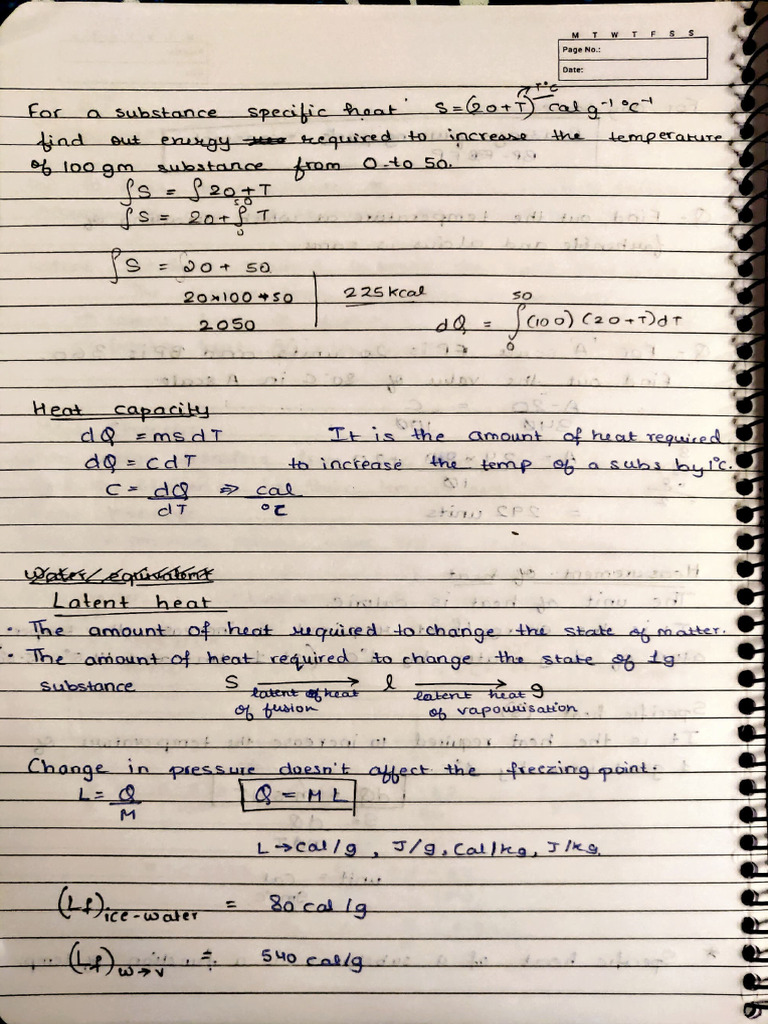 M T W T F S S
Page No.:
Date:
For a substance specific heat S = (20+T) cal g⁻¹ °C⁻¹
T°C
find out energy required to increase the temperature
of 100 gm substance from 0 to 50.
∫S = ∫20+T
∫S = 20+∫₀⁵⁰ T
∫S = 20 + 50
20×100+50
2050
225 kcal
dQ = ∫₀⁵⁰ (100) (20+T)dT
Heat capacity
dQ = msdT It is the amount of heat required
dQ = cdT to increase the temp of a subs by 1°C.
C = dQ/dT ⇒ cal/°C
Water equivalent
Latent heat
· The amount of heat required to change the state of matter.
· The amount of heat required to change the state of 1g
substance S → l → g
latent of heat of fusion
latent heat of vapourisation
Change in pressure doesn't affect the freezing point.
L = Q/M Q = ML
L → cal/g, J/g, Cal/kg, J/kg
(Lf)ice-water = 80 cal/g
(Lf)w→v = 540 cal/g